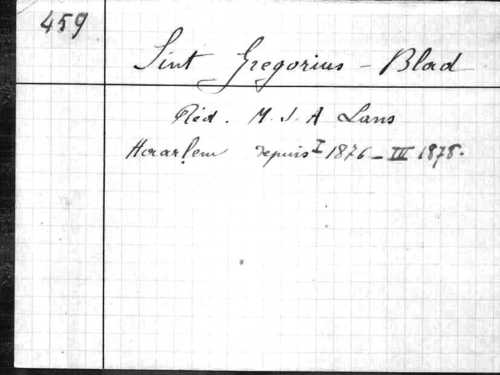 459
Sint Gregorius - Blad
Réd. M. J. A Lans
Haarlem depuis I 1876 - III 1878.